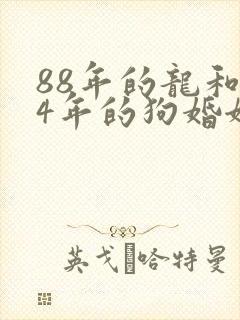 88年的龍和
4年的狗婚
英戈 哈特曼